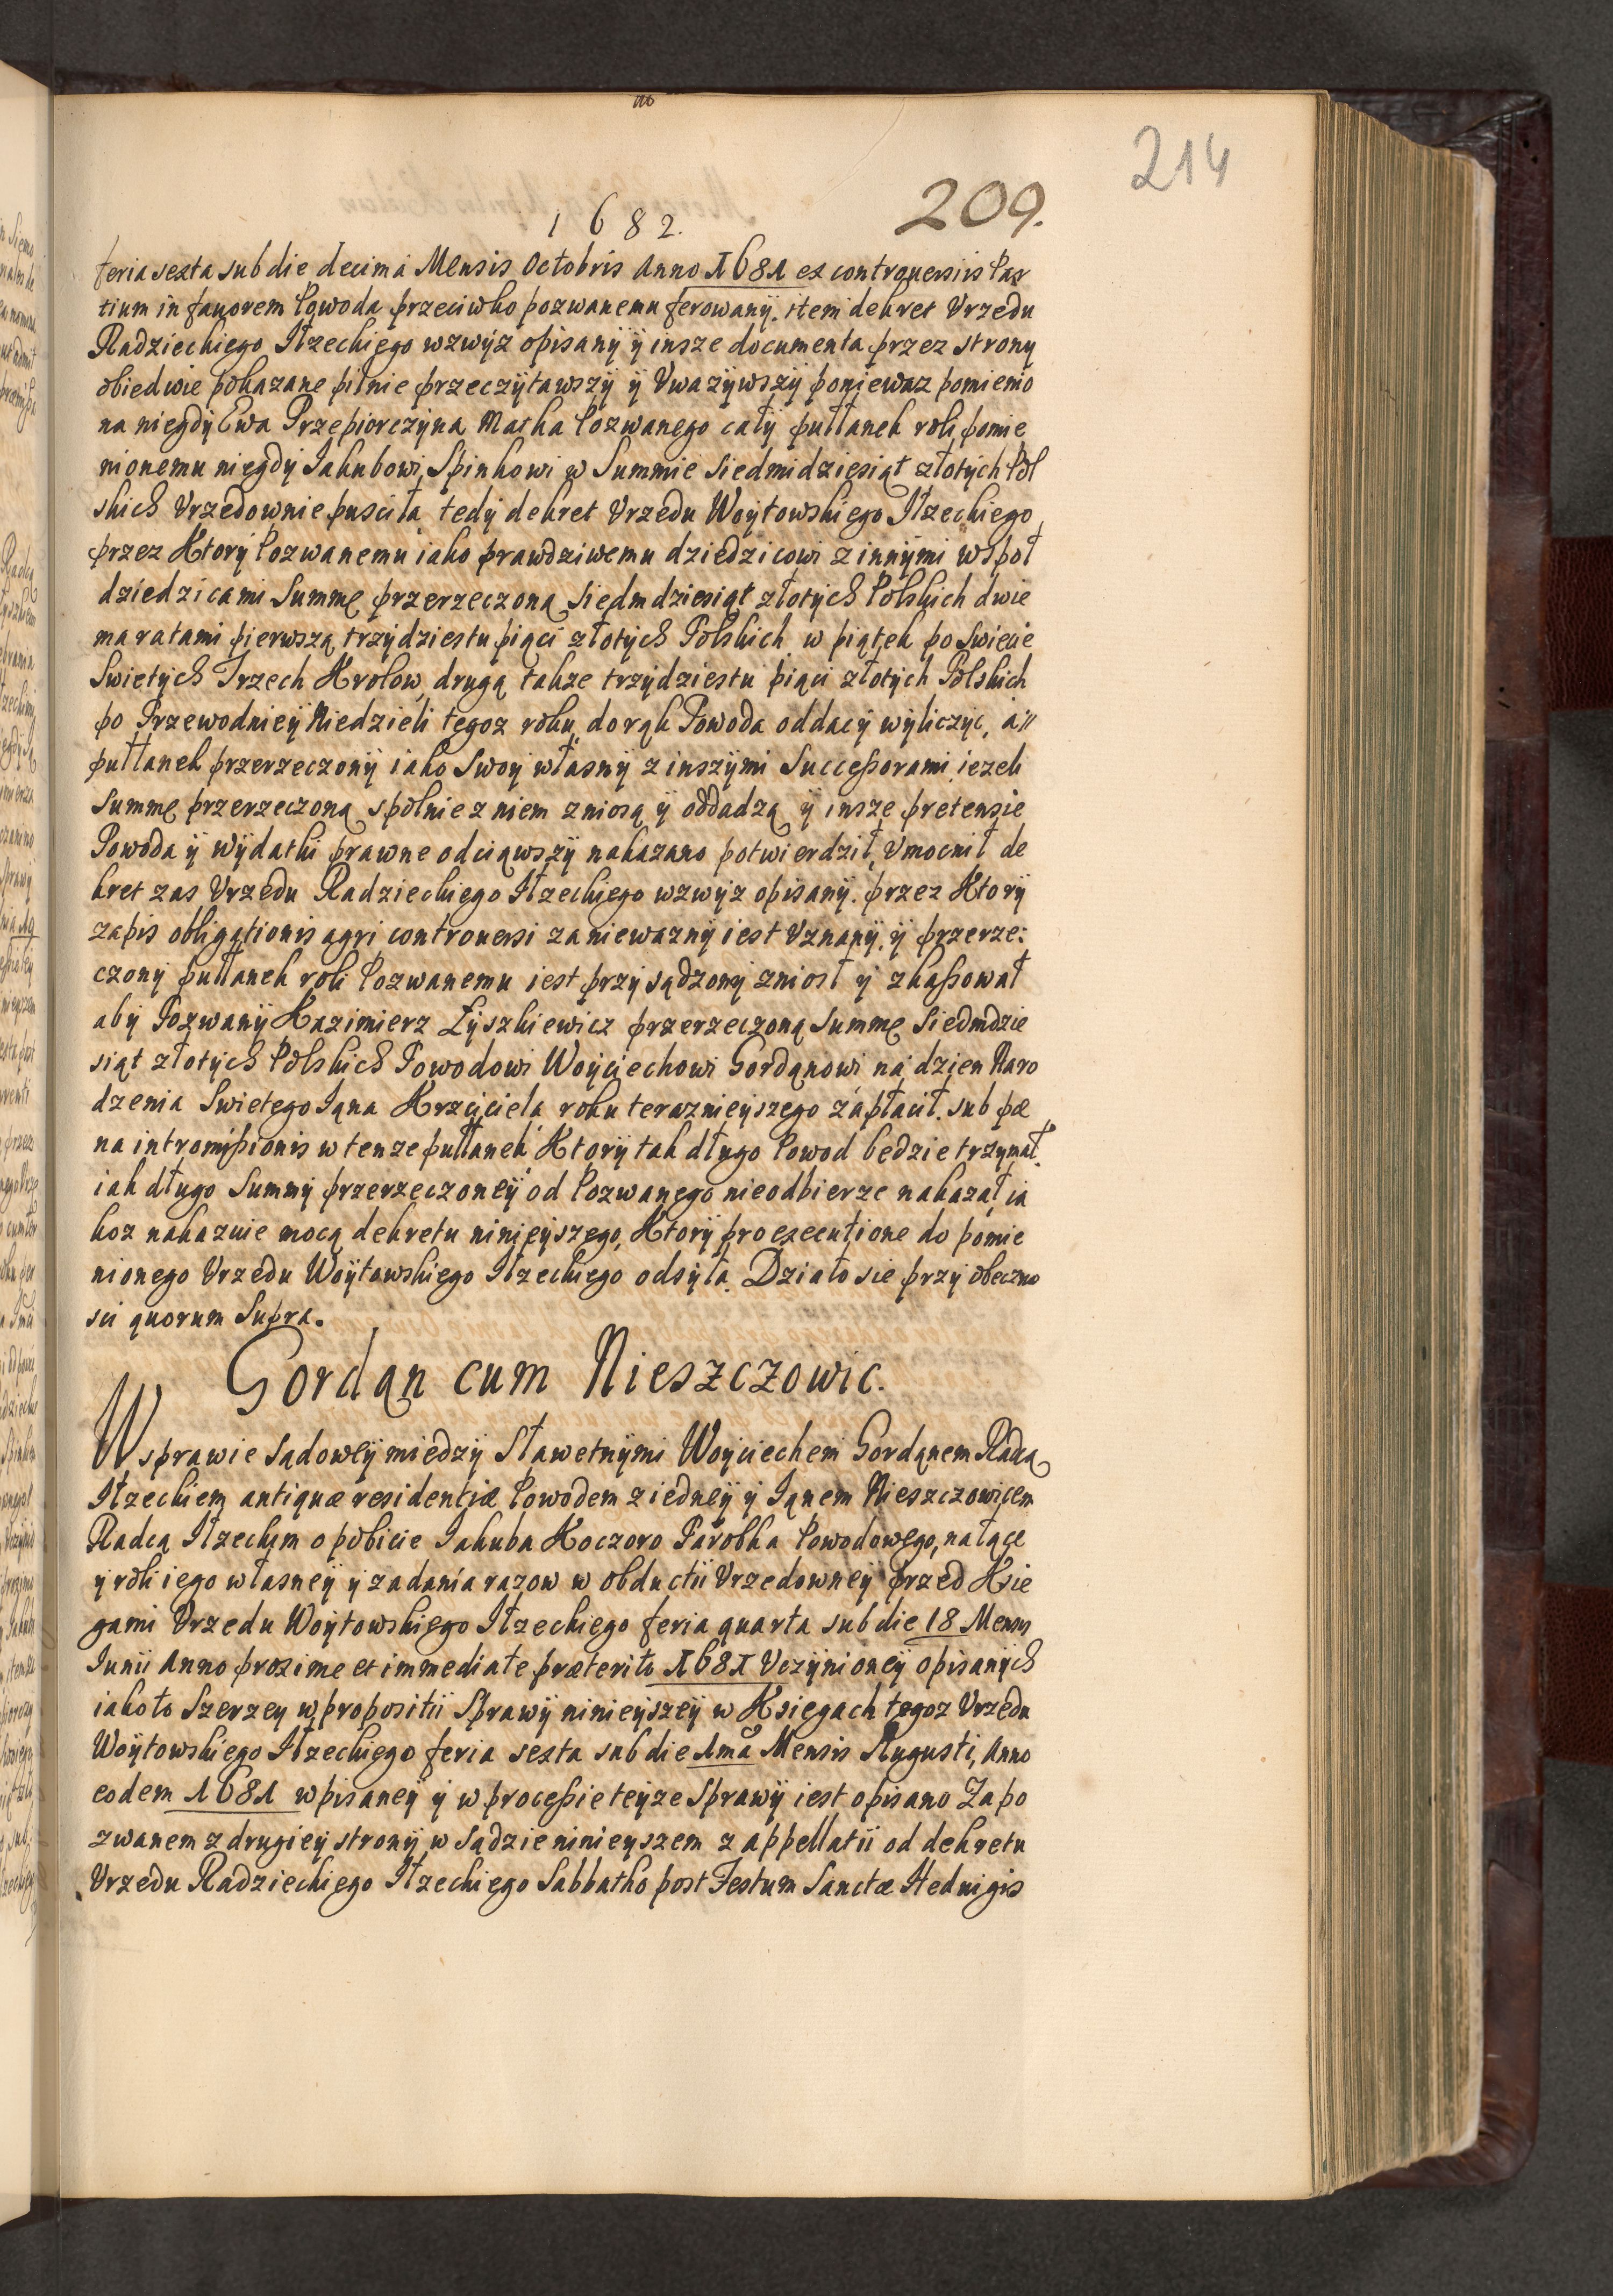 214
209.
1682.
feria sexta sub die decima Mensis Octobris Anno 1681 ex controuersiis Par
tium in fauorem Powoda przeciwko pozwanemu ferowany. item dekret Vrzędu
Radzieckiego Iłzeckiego wzwyż opisany ÿ insze documenta przez strony
obiedwie pokazane pilnie przeczytawszÿ ÿ Vwazÿwszÿ poniewaz pomienio
na niegdy Ewa Przepiorczyna Matka Pozwanego cały pułłanek roli pomie
nionemu niegdy Iakubowi Spinkowi w Summie Siedmidziesiąt złotych Pol
skich Vrzędownie puscila tedy dekret Vrzędu Woytowskiego Iłzeckiego
przez Ktory Pozwanemu iako prawdziwemu dziedzicowi z innymi wspoł
dziedzicami Summę przerzeczoną siedmdziesiąt złotych Polskich dwie
ma ratami pierwszą trzydziestu piąci złotych Polskich w piątek po Swięcie
Swiętych Trzech Krolow drugą takze trzydziestu piąci złotych Polskich
po Przewodnieÿ Niedzieli tegoz roku do rąk Powoda oddac ÿ wÿliczÿc, a
pułłanek przerzeczony iako Swoy własny z inszymi Successorami iezeli
Summę przerzeczoną spolnie z niem zniosą ÿ oddadzą ÿ insze pretensie
Powoda ÿ wÿdatki prawne odciąwszÿ nakazano potwierdził, Vmocnił de
kret zas Vrzędu Radzieckiego Iłzeckiego wzwyż opisany. przez Ktory
zapis obligationis agri controuersi za niewazny iest Vznany. ÿ przerze:
czony pułłanek roli Pozwanemu iest przysądzony zniosł y zkassował
aby Pozwany Kazimierz Zyszkiewicz przerzeczoną Summę Siedmdzie
siąt złotych Polskich Powodowi Woyciechowi Gordąnowi na dzien Naro
dzenia Swiętego Iąna Krzciciela roku terazniejszego zapłacił. sub pœ
na intromissionis w tenze pułłanek Ktory tak długo Powod będzie trzymał.
iak długo Summy przerzeczoneÿ od Pozwanego nieodbierze nakazał, ia
koz nakazuie mocą dekretu ninieyszego, Ktory pro executione do pomie
nionego Vrzędu Woytowskiego Iłzeckiego odsyła. Działo się przy obecno
sci quorum Supra.
Gordąn cum Nieszczowic.
W sprawie Sądoweÿ między Sławetnymi Woyciechem Gordąnem Radcą
Iłzeckiem antiquæ residentiæ Powodem z iedneÿ y Iąnem Nieszczowicem
Radcą Iłzeckim o pobicie Iakuba Koczoro Parobka Powodowego, na łące
y roli iego własney y zadania razow w obductii Vrzędowneÿ przed Ksie
gami Vrzędu Woytowskiego Iłzeckiego feria quarta sub die 18 Mensis
Iunii Anno proxime et immediate præterito 1681 Vczynioneÿ opisanych
iako to Szerzey w propositii Sprawy ninieyszeÿ w Ksiegach tegoz Vrzędu
Woytowskiego Iłzeckiego feria sexta sub die 1ma Mensis Augusti, Anno
eodem 1681 wpisaneÿ y w processie teyze Sprawÿ iest opisano Zapo
zwanem z drugieÿ stronÿ w Sądzie ninieyszem z appellatii od dekretu
Vrzędu Radzieckiego Iłzeckiego Sabbatho post Festum Sanctæ Heduigis